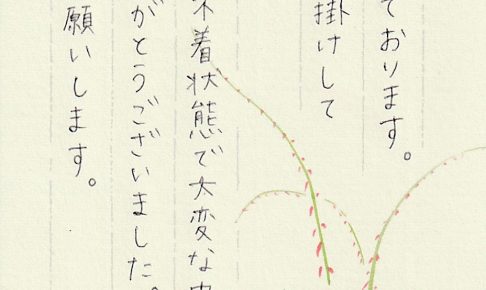 ております。
掛けして
不着状態で大変な中
がとうございました。
願いします。